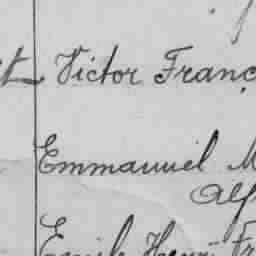 t Victor Franç
Emmanuel M
Alf
Emile Henri Fr